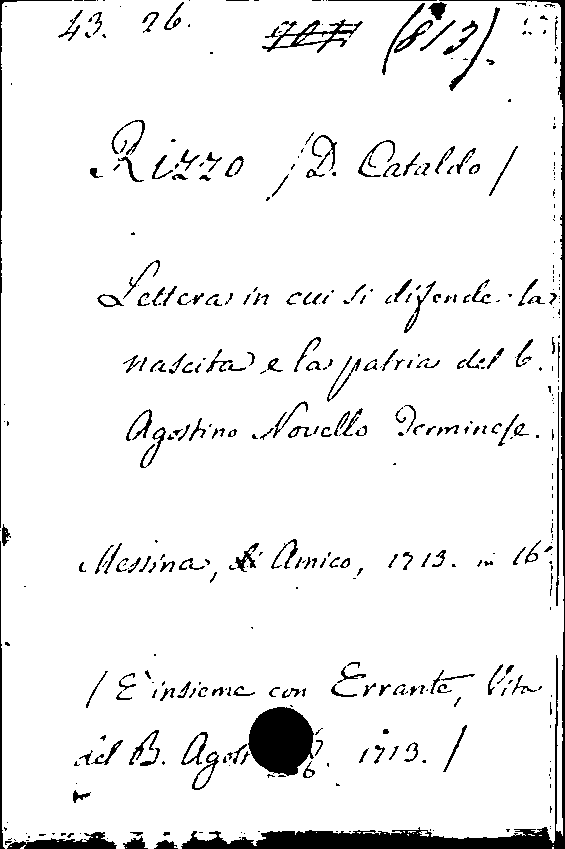 43. 26. (813).
Rizzo / D. Cataldo /
Lettera in cui si difende la
nascita e la patria del b.
Agostino Novello Terminese.
Messina, di Amico, 1713. in 16°
/ E' insieme con Errante, Vita
del B. Agost 1713. /